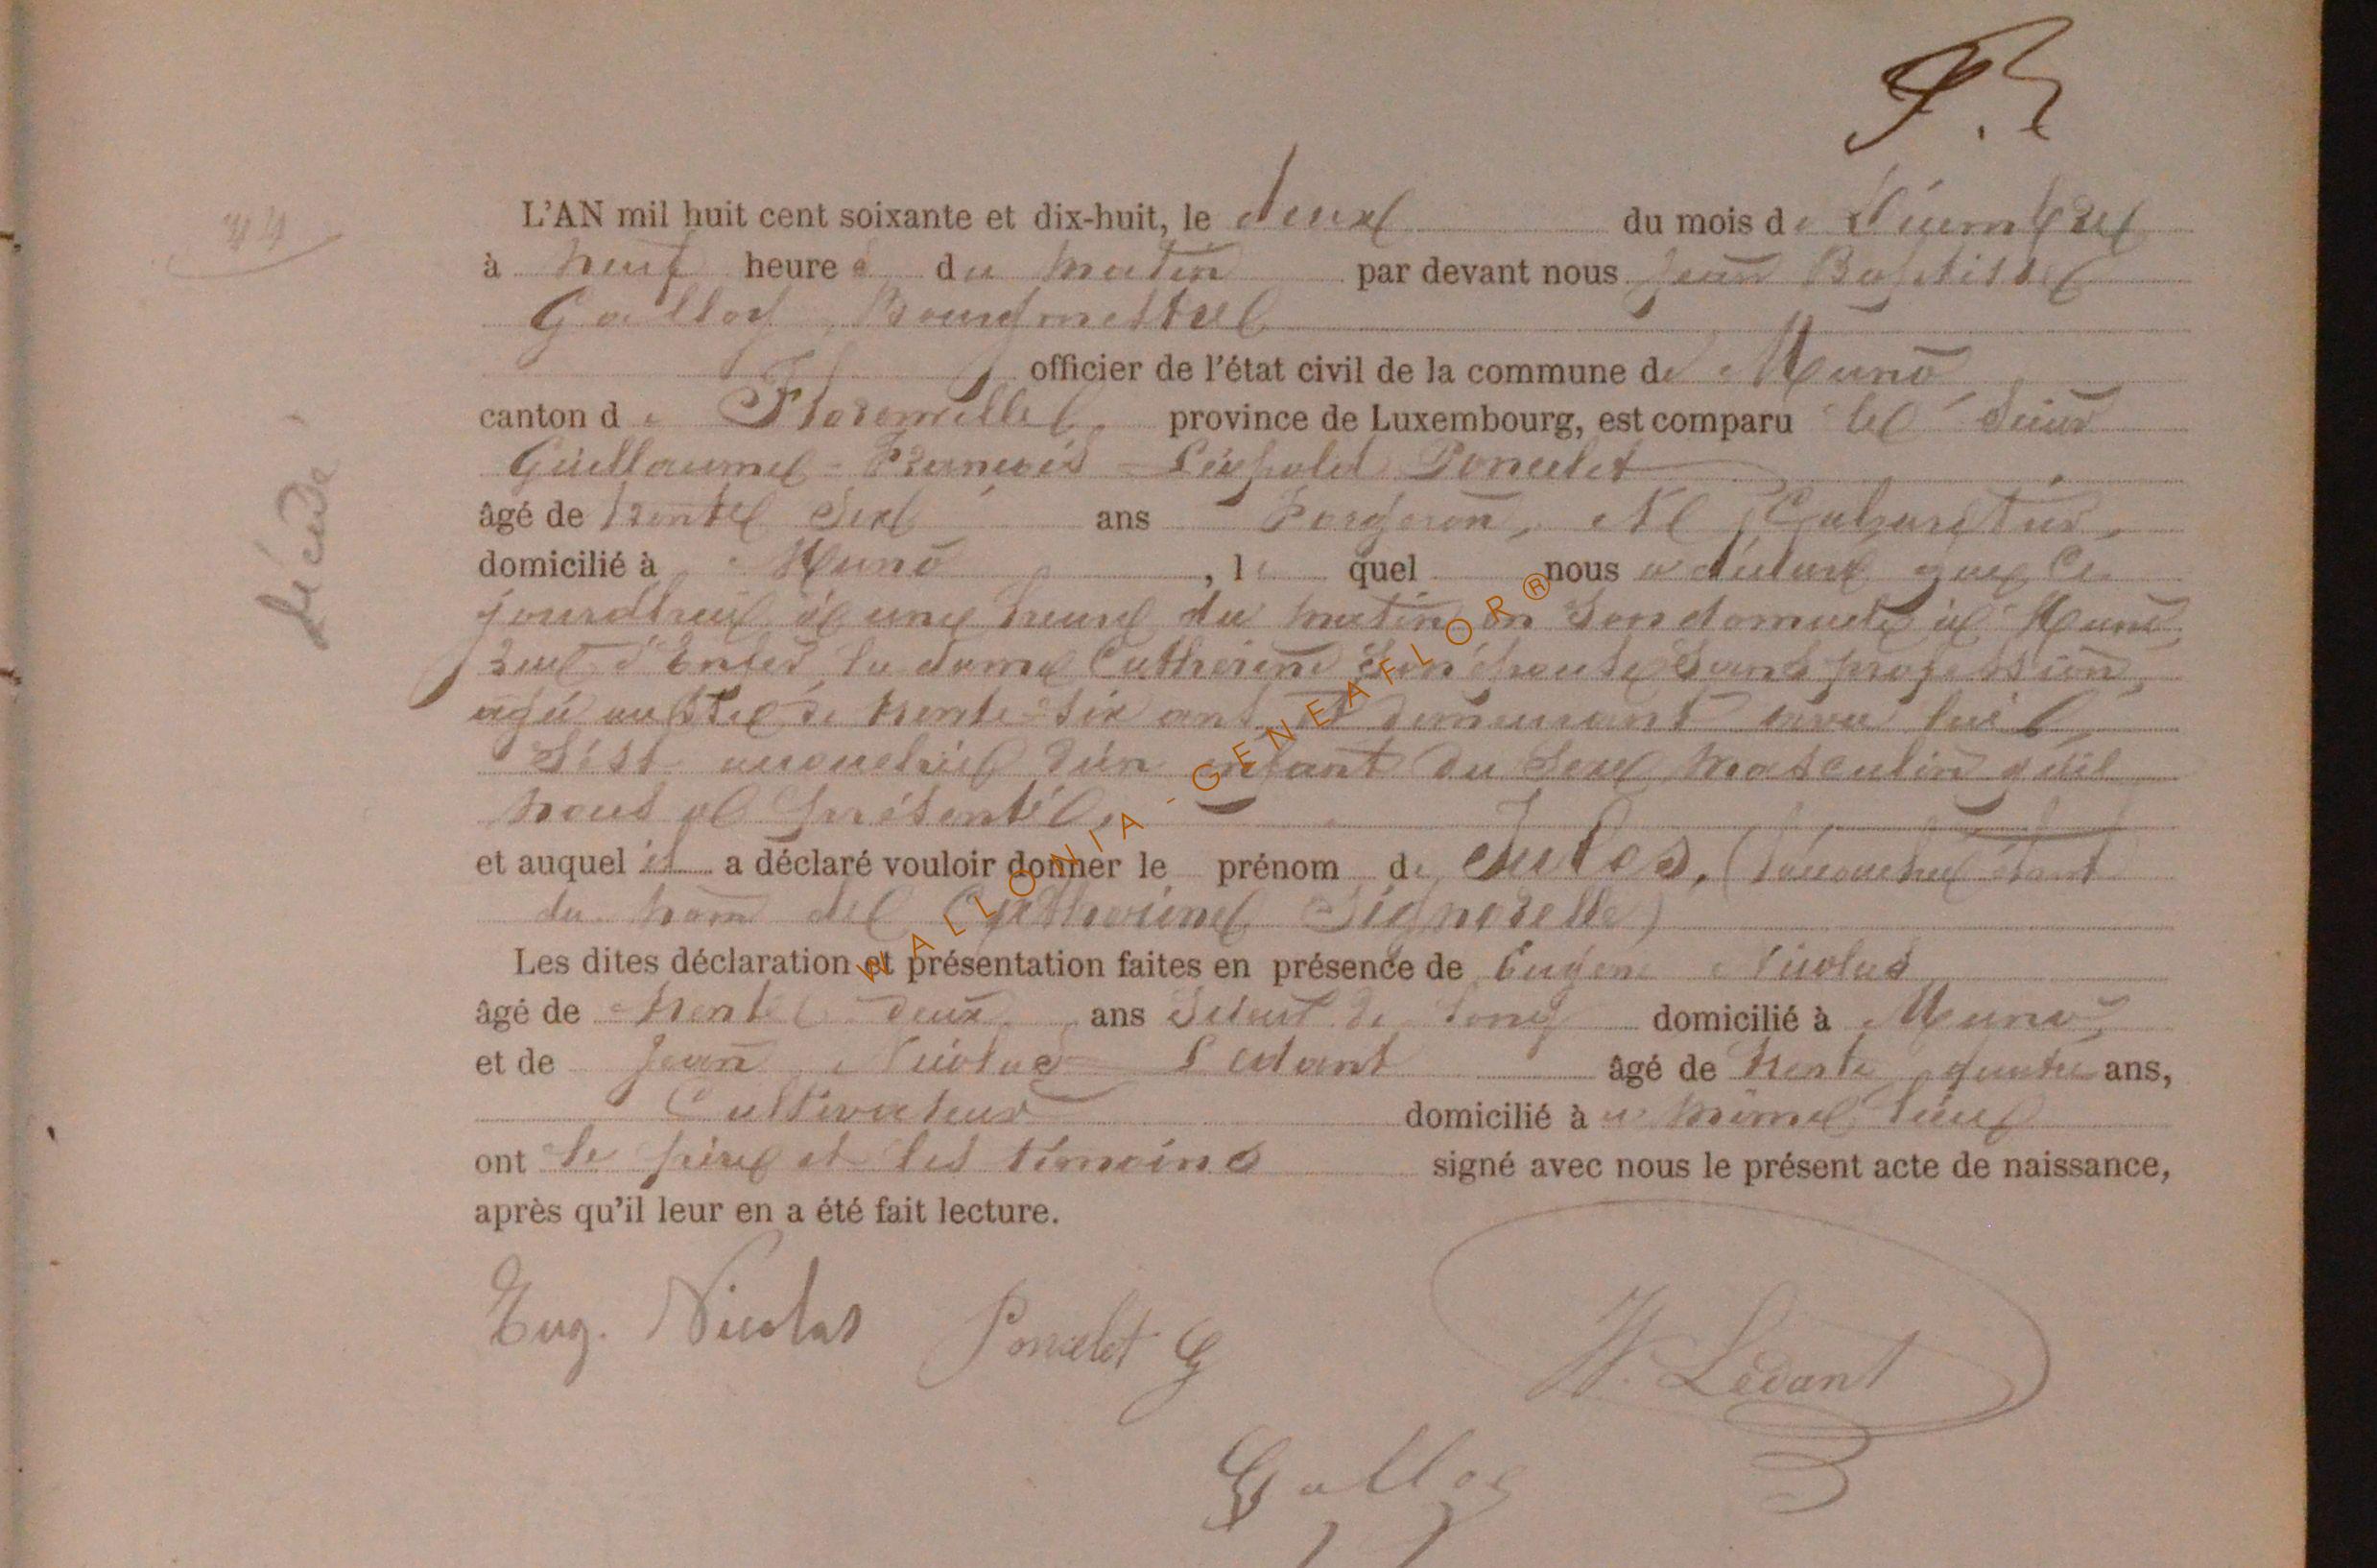 44
décédé
L'AN mil huit cent soixante et dix-huit, le deux du mois de Décembre
à neuf heures du matin par devant nous Jean Baptiste
Galloy, Bourgmestre
officier de l'état civil de la commune de Muno
canton de Florenville, province de Luxembourg, est comparu le sieur
Guillaume-François-Léopold Poncelet
âgé de trente six ans Forgeron, et Cabaretier,
domicilié à Muno, lequel nous a déclaré que ce
jourd'hui à une heure du matin en son domicile à Muno,
rue d'Enfer, la dame Catherine son épouse sans profession,
âgée aussi de trente-six ans et demeurant avec lui,
s'est accouchée d'un enfant du sexe masculin qu'il
nous a présenté,
et auquel il a déclaré vouloir donner le prénom de Jules, (l'accouchée étant
du nom de Catherine Signorelle)
Les dites déclaration et présentation faites en présence de Eugène Nicolas
âgé de trente deux ans Scieur de long domicilié à Muno,
et de Jean Nicolas Ledant âgé de trente quatre ans,
Cultivateur domicilié à u même lieu
ont le père et les témoins signé avec nous le présent acte de naissance,
après qu'il leur en a été fait lecture.
Eug. Nicolas Poncelet G N. Ledant
Galloy
WALLONIA - GENEAFLOR®